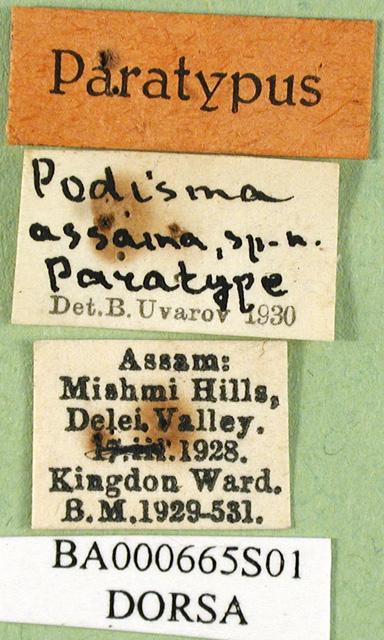 Paratypus
Podisma
assama, sp.n.
Paratype
Det. B. Uvarov 1930
Assam:
Mishmi Hills,
Delei Valley.
.1928.
Kingdon Ward.
B.M.1929-531.
BA000665S01
DORSA